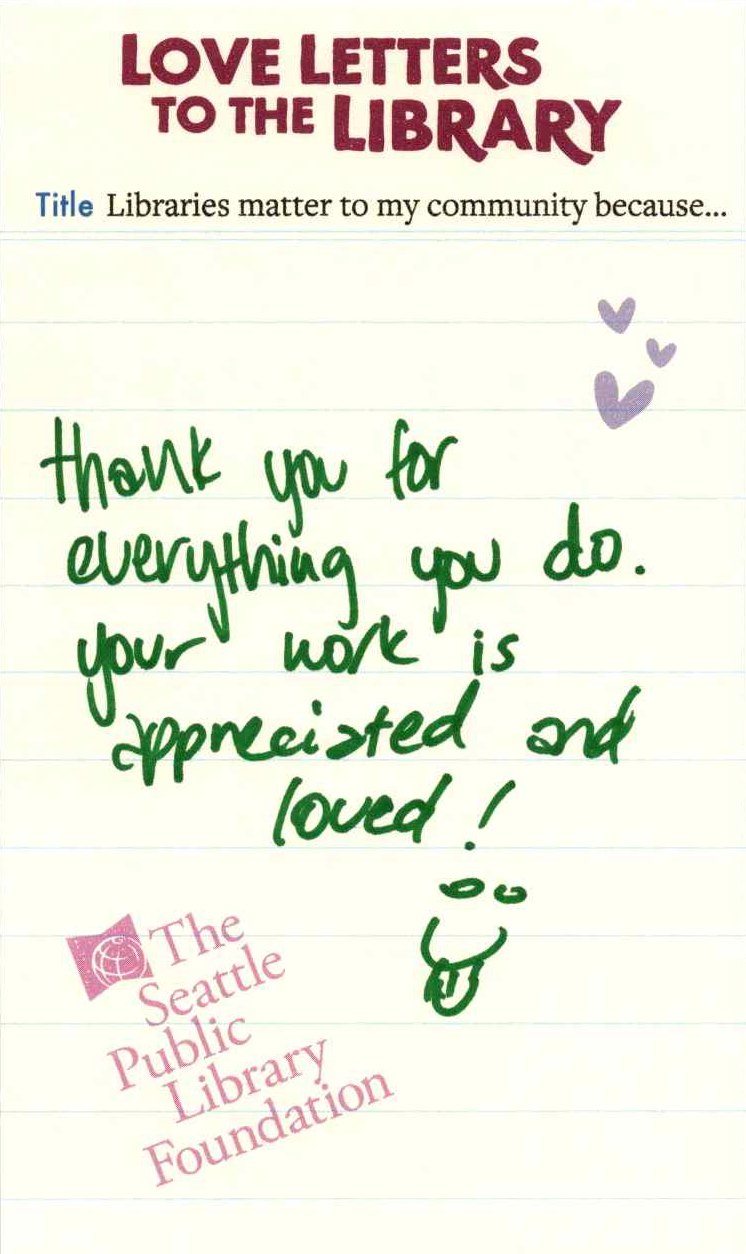 LOVE LETTERS
TO THE LIBRARY
Title Libraries matter to my community because...
thank you for
everything you do.
your work is
appreciated and
loved!
The
Seattle
Public
Library
Foundation